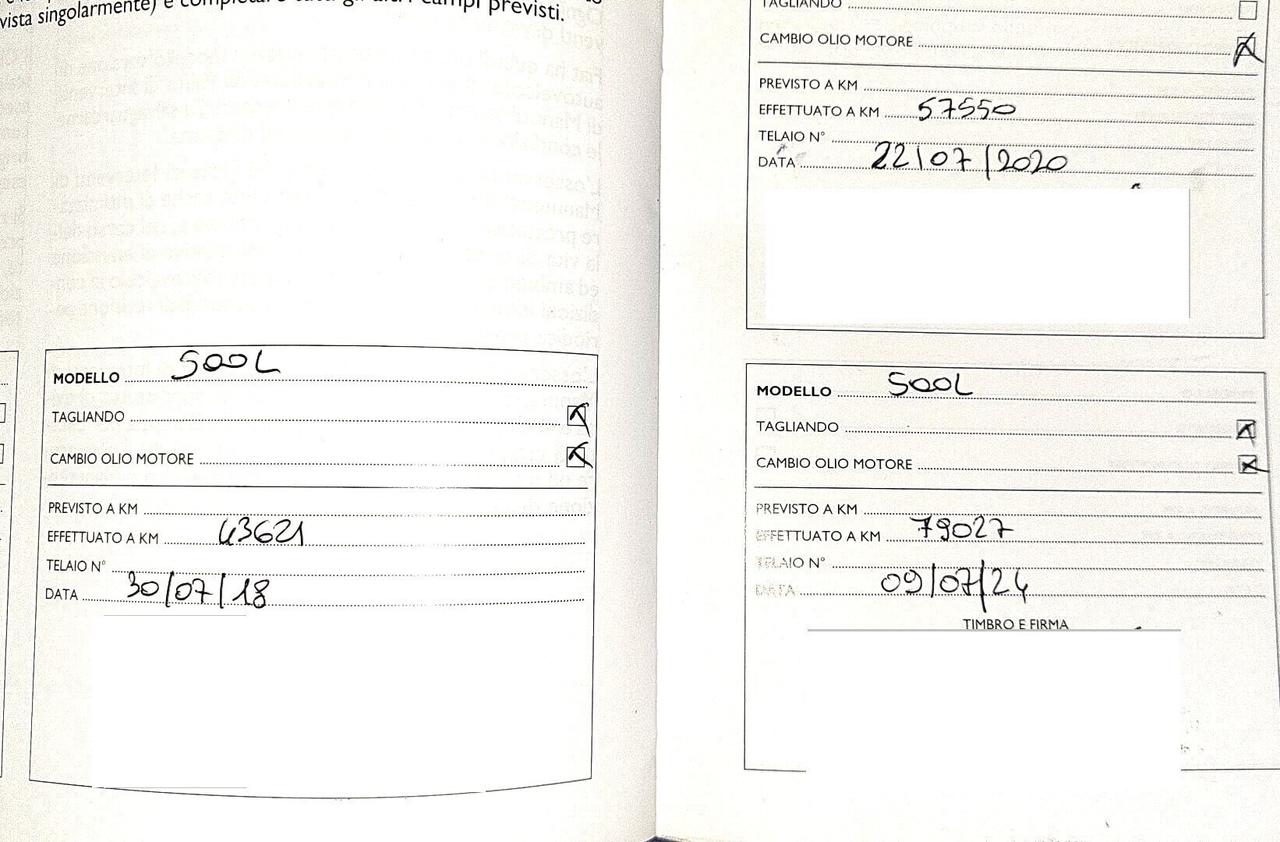 vista singolarmente) e completare tutti gli altri campi previsti.
MODELLO 500L
TAGLIANDO
CAMBIO OLIO MOTORE
PREVISTO A KM
EFFETTUATO A KM 43621
TELAIO N°
DATA 30/07/18
TAGLIANDO
CAMBIO OLIO MOTORE
PREVISTO A KM
EFFETTUATO A KM 57550
TELAIO N°
DATA 22/07/2020
MODELLO 500L
TAGLIANDO
CAMBIO OLIO MOTORE
PREVISTO A KM
EFFETTUATO A KM 79027
TELAIO N°
DATA 09/07/24
TIMBRO E FIRMA